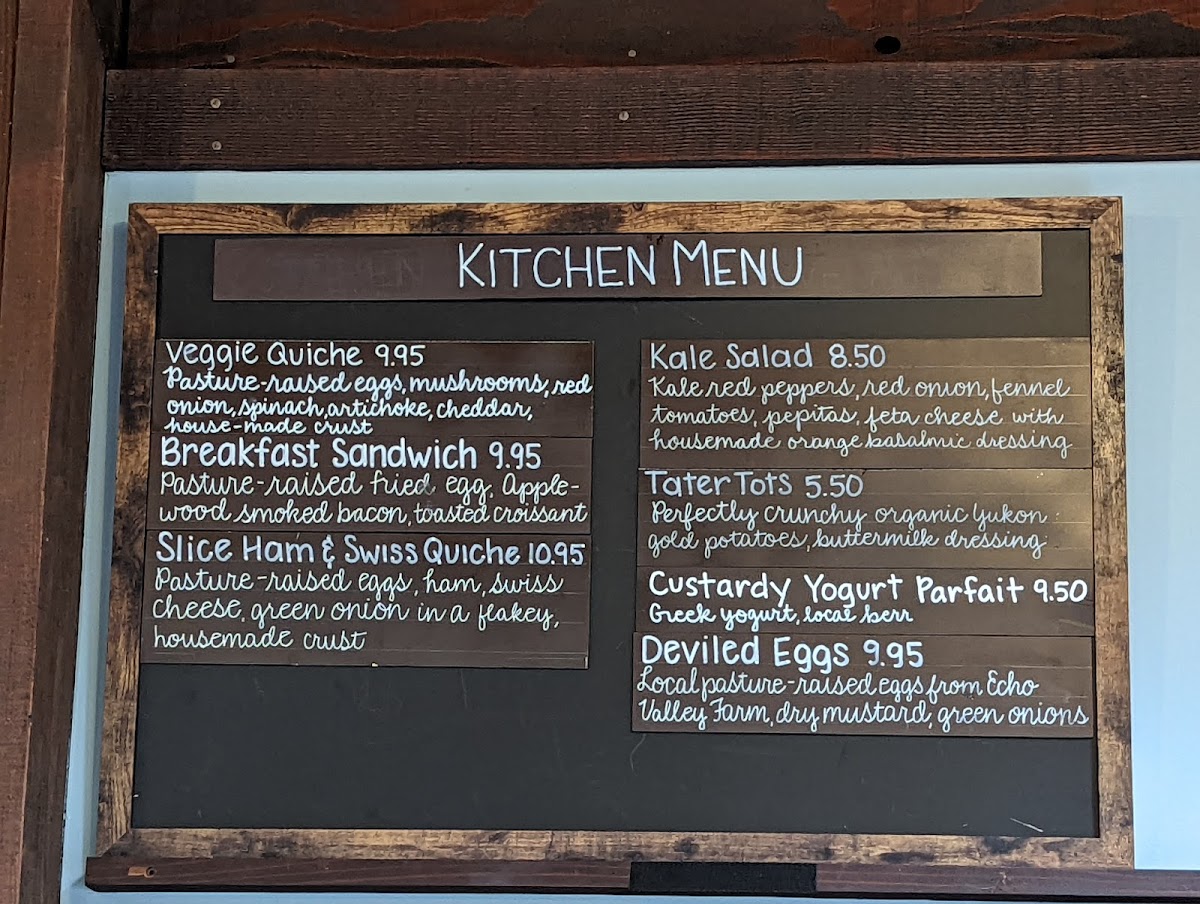 KITCHEN MENU
Veggie Quiche 9.95
Pasture-raised eggs, mushrooms, red
onion, spinach, artichoke, cheddar,
house-made crust
Breakfast Sandwich 9.95
Pasture-raised fried egg, Apple-
wood smoked bacon, toasted croissant
Slice Ham & Swiss Quiche 10.95
Pasture-raised eggs, ham, swiss
cheese, green onion in a feakey,
housemade crust
Kale Salad 8.50
Kale red peppers, red onion, fennel
tomatoes, pepitas, feta cheese with
housemade orange basalmic dressing
Tater Tots 5.50
Perfectly crunchy organic Yukon
gold potatoes, buttermilk dressing
Custardy Yogurt Parfait 9.50
Greek yogurt, local berr
Deviled Eggs 9.95
Local pasture-raised eggs from Echo
Valley Farm, dry mustard, green onions